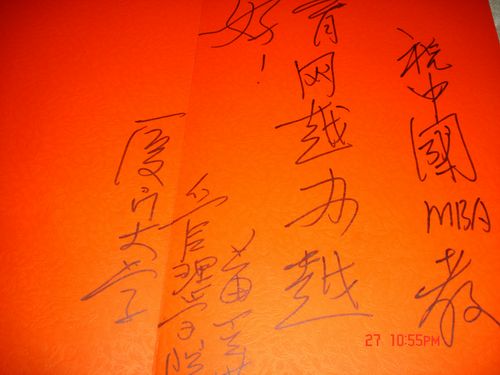 祝中國MBA教
育网越办越
好！
厦门大学
管理学院
27 10:55PM